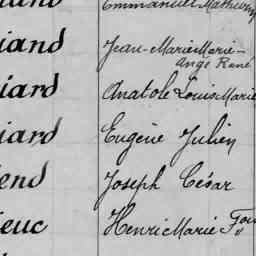 Emmanuel Mathurin
iand Jean-Marie Marie-
Ange René
iard Anatole Louis Marie
iard Eugène Julien
end Joseph César
ieuc Henri Marie